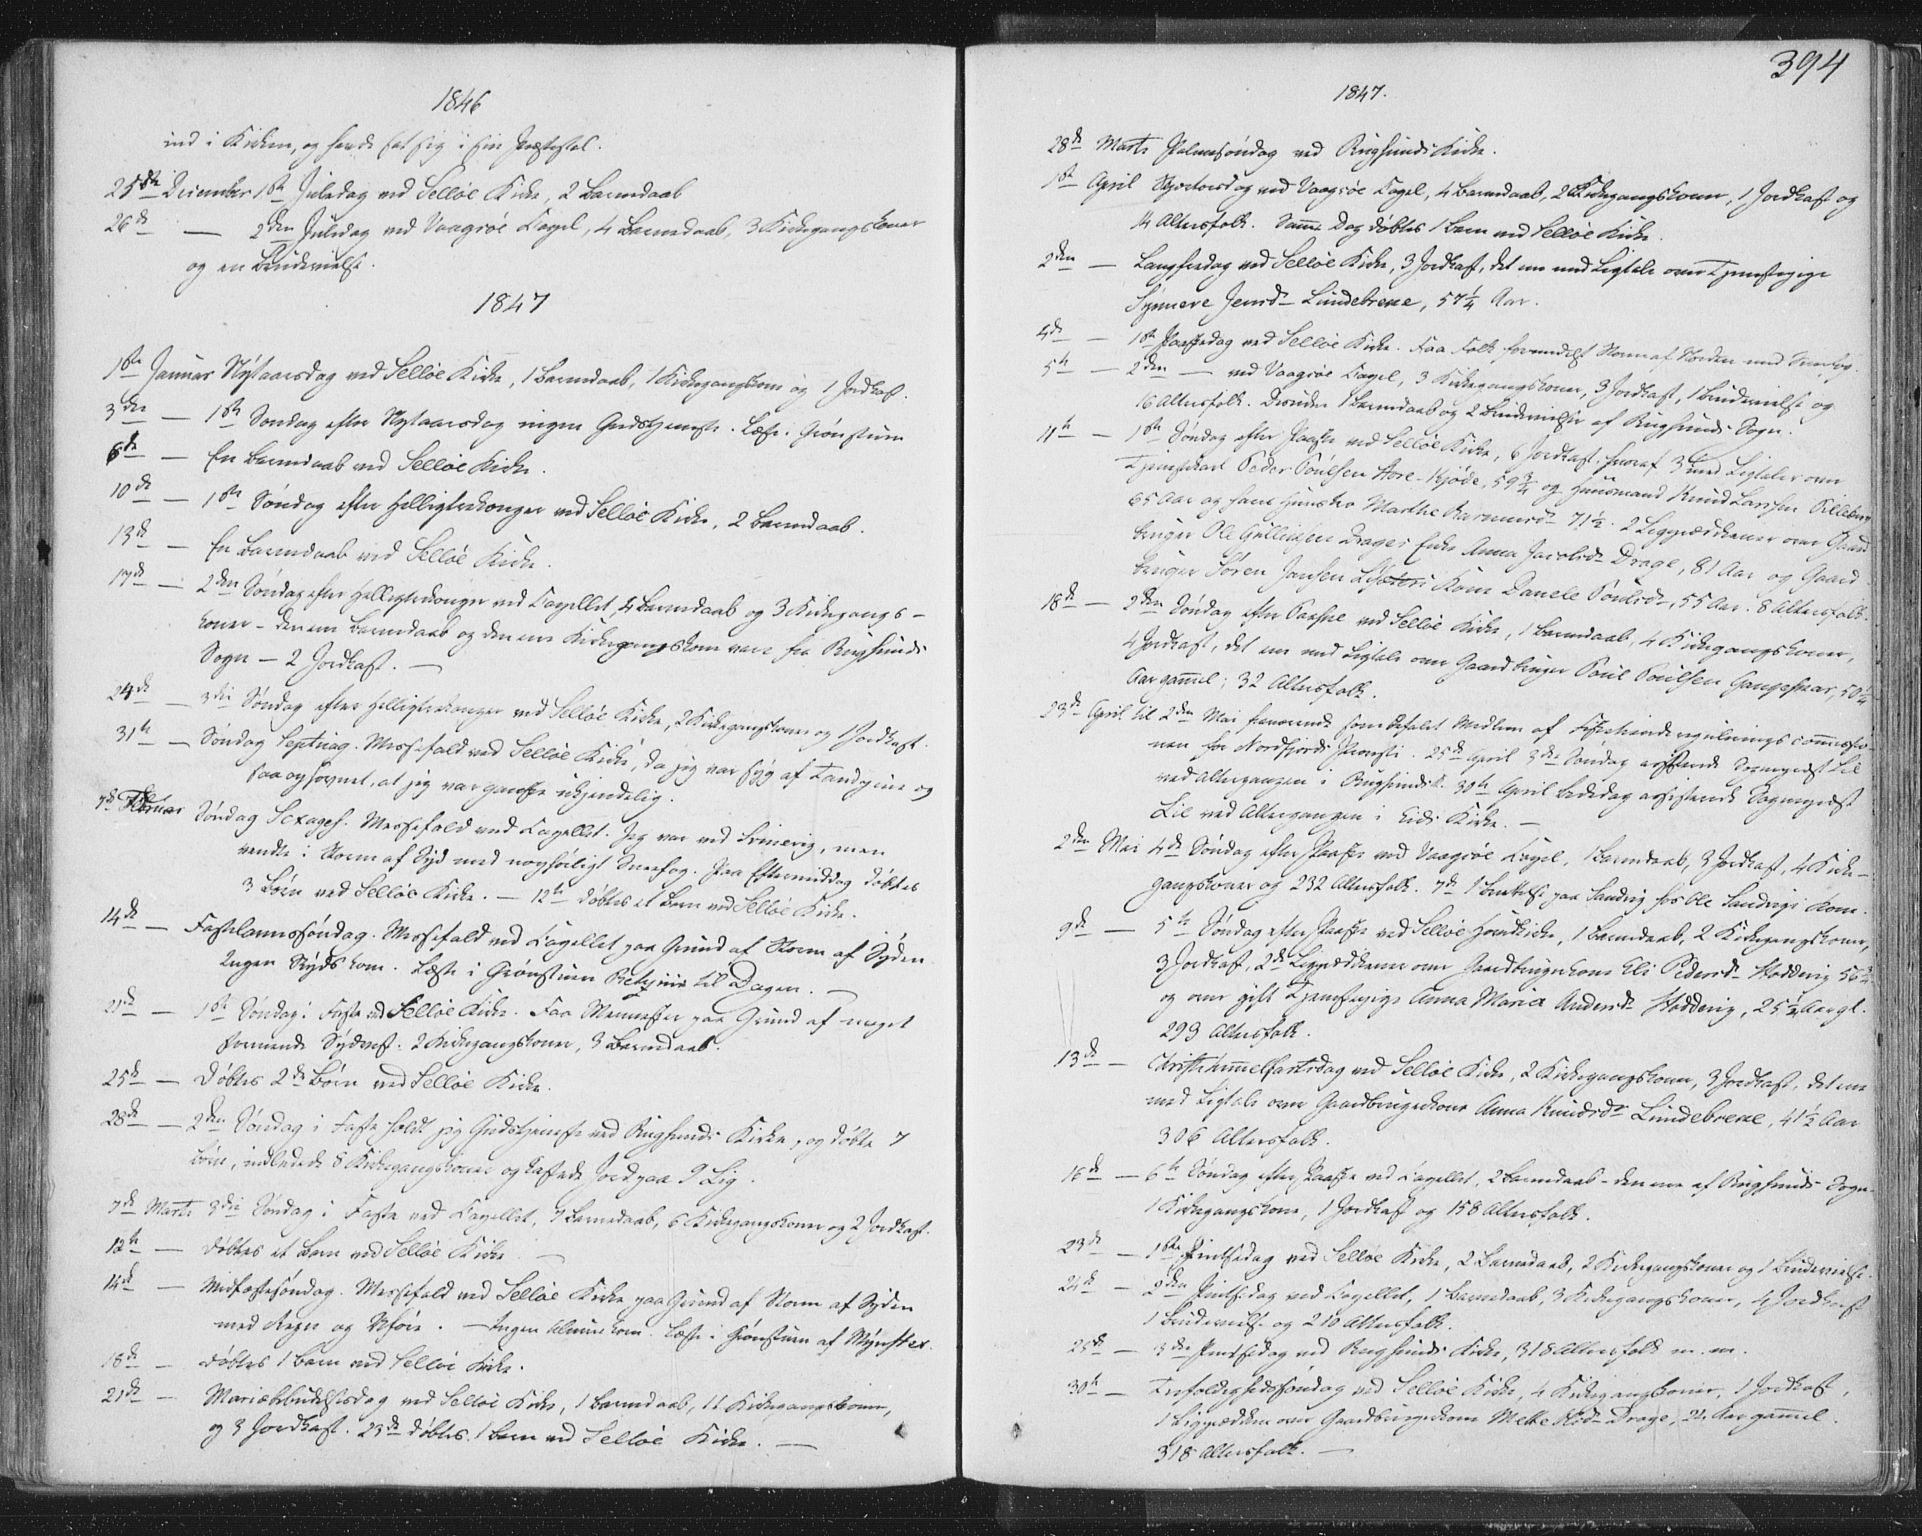 1846
ind i Kirken, og havde sat sig i sin Præstestol.
25de December 1ste Juledag ved Selløe Kirke, 2 Barnedaab
26de — 2den Juledag ved Vaagsøe Capel, 4 Barnedaab, 3 Kirkegangskoner
og en Brudevielse.
1847
1ste Januar Nytaarsdag ved Selløe Kirke, 1 Barnedaab, 1 Kirkegangskone og 1 Jordkast.
3die — 1ste Søndag efter Nytaarsdag ingen Gudstjeneste. Læste i Grønstuen
6te — En Barnedaab ved Selløe Kirke.
10de — 1ste Søndag efter Helligtrekonger ved Selløe Kirke, 2 Barnedaab.
13de — En Barnedaab ved Selløe Kirke.
17de — 2den Søndag efter Helligtrekonger ved Capellet, 4 Barnedaab og 3 Kirkegangs-
koner – den ene Barnedaab og den ene Kirkegangskone vare fra Rugsunds
Sogn — 2 Jordkast. —
24de — 3die Søndag efter Helligtrekonger ved Selløe Kirke, 2 Kirkegangskoner og 1 Jordkast.
31te — Søndag Septuag. Messefald ved Selløe Kirke, da jeg var syg af Tandpine og
saa ophovnet, at jeg var ganske ukjendelig.
7de Februar Søndag Sexages. Messefald ved Capellet. Jeg var ved, men
vendte i Storm af Syd med Sneefog. Paa Eftermiddag døbtes
3 Børn ved Selløe Kirke. — 12te døbtes et Barn ved Selløe Kirke.
14de — Fastelavnssøndag. Messefald ved Capellet paa Grund af Storm af Syden
Ingen Skyds kom. Læste i Grønstuen til Dagen. —
21de — 1ste Søndag i Faste ved Selløe Kirke. Faa Mennesker paa Grund af meget
Sydvest. 2 Kirkegangskoner, 3 Barnedaab.
25de — Døbtes 2de Børn ved Selløe Kirke.
28de — 2den Søndag i Faste holdt jeg Gudstjeneste ved Rugsunds Kirke, og døbte 7
Børn, indledede 8 Kirkegangskoner og kastede Jord paa 9 Lig.
7de Marts 3die Søndag i Faste ved Capellet, 7 Barnedaab, 6 Kirkegangskoner og 2 Jordkast.
12te — døbtes et Barn ved Selløe Kirke. —
14de — Midfastesøndag. Messefald ved Selløe Kirke paa Grund af Storm af Syden
med Regn og. — Ingen Almue kom. Læste i Grønstuen af Mynster.
18de — døbtes 1 Barn ved Selløe Kirke.
21de — Mariæbebudelsesdag ved Selløe Kirke, 1 Barnedaab, 11 Kirkegangskoner,
og 3 Jordkast. 23de døbtes 1 Barn ved Selløe Kirke. —
394
1847.
28de Marts Palmesøndag ved Rugsunds Kirke.
1ste April Skjertorsdag ved Vaagsøe Capel, 4 Barnedaab, 2 Kirkegangskoner, 1 Jordkast og
14 Altersfolk. Samme Dag døbtes 1 Barn ved Selløe Kirke.
2den — Langfredag ved Selløe Kirke, 3 Jordkast, det ene med Ligtale over Tjenestepige
Synneve Jensd. Lundebrekke, 57¼ Aar.
4de — 1ste Paaskedag ved Selløe Kirke. Faa Folk formedelst Storm af Norden med Sneefog.
5te — 2den — ved Vaagsøe Capel, 3 Kirkegangskoner, 3 Jordkast, 1 Brudevielse og
16 Altersfolk. Desuden 1 Barnedaab og 2 Brudevielser af Rugsunds Sogn.
11te — 1ste Søndag efter Paaske ved Selløe Kirke, 6 Jordkast, hvoraf 3 med Ligtaler over
Tjenestekarl Peder Poulsen, 59¾ og Huusmand Knud Larsen
65 Aar og hans Hustro Marthe Rasmusd. 71½. 2 Ligprædikener over Gaard-
bruger Ole Drages Enke Anna Jacobsd. Drage, 81 Aar og Gaard-
bruger Søren Jansen Kone Danele Poulsd., 55 Aar. 8 Altersfolk.
18de — 2den Søndag efter Paaske ved Selløe Kirke, 1 Barnedaab, 4 Kirkegangskoner,
4 Jordkast, det ene med Ligtale over Gaardbruger Poul Poulsen, 50¼
Aar gammel; 32 Altersfolk.
23de April til 2den Mai fraværende som befalet Medlem af commissio-
nen for Nordfjords Provsti. 25de April 3die Søndag assisterede Sogneprest Lil
ved Altergangen i Rugsund. 30te April Bededag assisterede Sogneprest
Lil ved Altergangen i Eids Kirke. —
2den Mai 4de Søndag efter Paaske ved Vaagsøe Capel, 1 Barnedaab, 3 Jordkast, 4 Kirke-
gangskoner og 232 Altersfolk. 7de 1 paa Sandvig hos Ole Sandvigs Kone.
9de — 5te Søndag efter Paaske ved Selløe Hovedkirke, 1 Barnedaab, 2 Kirkegangskoner,
3 Jordkast, 2de Ligprædikener over Gaardbrugerkone Eli Pedersd. Hoddevig 56¾
og over gift Tjenestepige Anna Maria Andersd. Hoddevig, 25½ Aar gl.
293 Altersfolk.
13de — Christi Himmelfartsdag ved Selløe Kirke, 2 Kirkegangskoner, 3 Jordkast, det ene
med Ligtale over Gaardbrugerkone Anna Knudsd. Lundebrekke, 41½ Aar
306 Altersfolk.
16de — 6te Søndag efter Paaske ved Capellet, 2 Barnedaab – den ene af Rugsunds Sogn.
1 Kirkegangskone, 1 Jordkast og 158 Altersfolk.
23de — 1ste Pintsedag ved Selløe Kirke, 2 Barnedaab, 2 Kirkegangskoner og 1 Brudevielse.
24de — 2den Pintsedag ved Capellet, 1 Barnedaab, 3 Kirkegangskoner, 4 Jordkast
1 Brudevielse og 210 Altersfolk.
25de — 3die Pintsedag ved Rugsunds Kirke, 318 Altersfolk m. m.
30te — Trefoldighedssøndag ved Selløe Kirke, 4 Kirkegangskoner, 1 Jordkast,
1 Ligprædiken over Gaardbrugerkone Mette Drage, Aar gammel.
318 Altersfolk. —